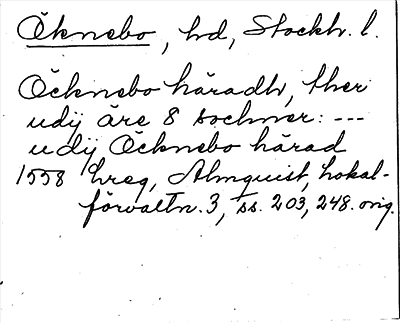 Öknebo, hd, Stockh. l.
Öcknebo häradh, ther
udij äre 8 sochner: ---
udij Öcknebo härad
1558 hreg, Almquist, Lokal-
förvaltn. 3, ss. 203, 248. orig.